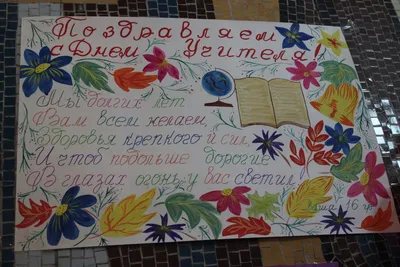 Поздравляем
с Днем Учителя!
Мы долгих лет
Вам всем желаем,
Здоровья крепкого и сил,
И чтоб побольше дорогие
В глазах огонь у вас светил.